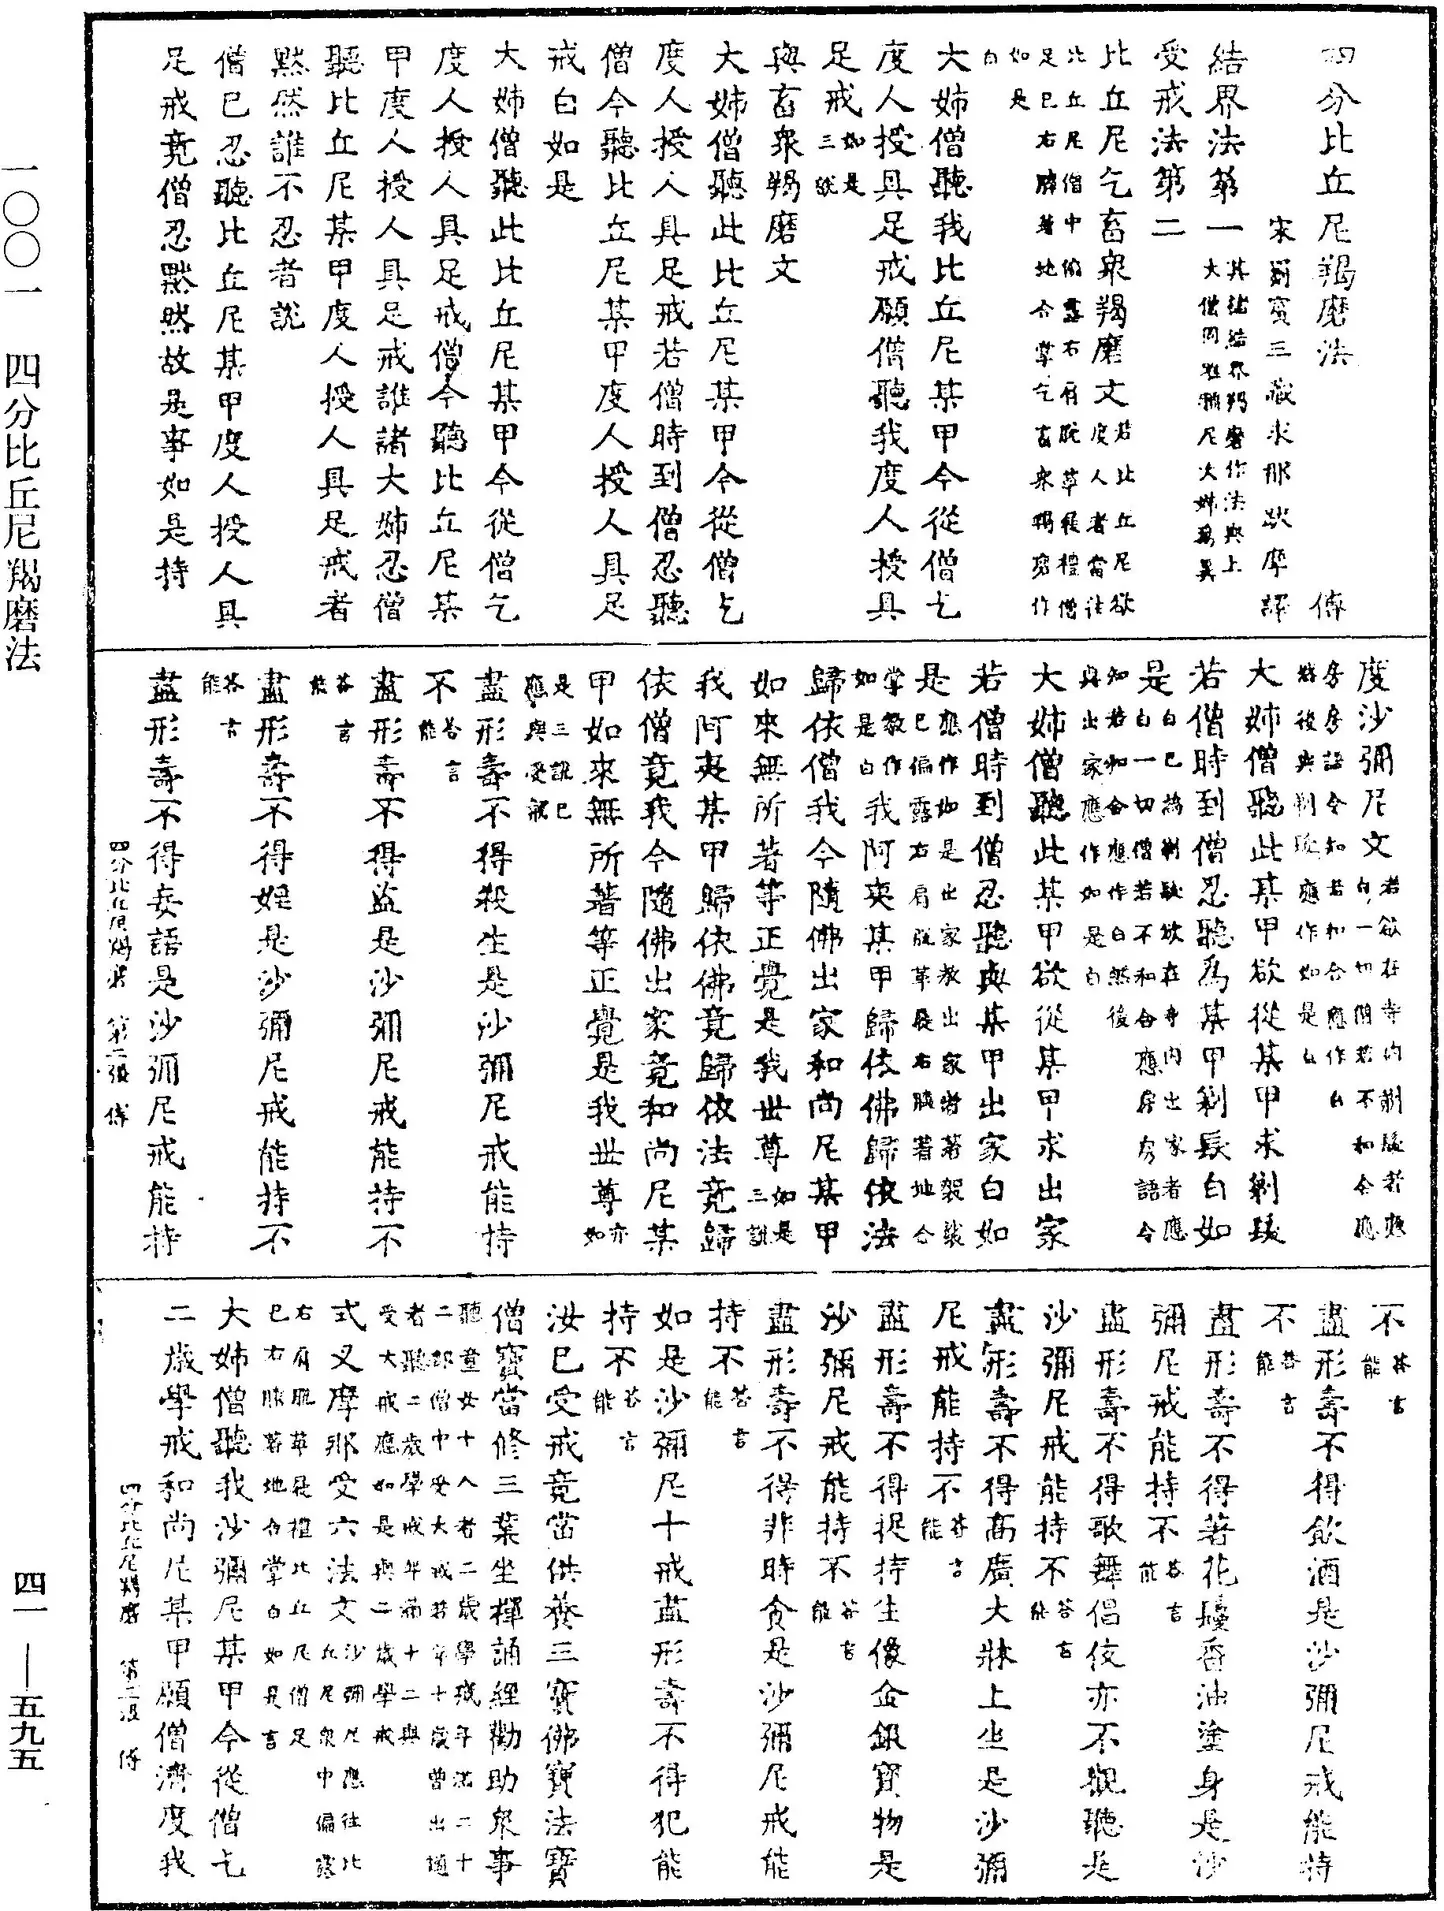 四分比丘尼羯磨法　傅
宋罽賓三藏求那跋摩譯
結界法第一其諸結界羯磨作法與上大僧同唯稱尼大姊爲異
受戒法第二
比丘尼乞畜衆羯磨文若比丘尼欲度人者當往比丘尼僧中偏露右肩脫革屣禮僧足已右膝著地合掌乞畜衆羯磨作如是白
大姊僧聽我比丘尼某甲今從僧乞
度人授具足戒願僧聽我度人授具
足戒如是三說
與畜衆羯磨文
大姊僧聽此比丘尼某甲今從僧乞
度人授人具足戒若僧時到僧忍聽
僧今聽比丘尼某甲度人授人具足
戒白如是
大姊僧聽此比丘尼某甲今從僧乞
度人授人具足戒僧今聽比丘尼某
甲度人授人具足戒誰諸大姊忍僧
聽比丘尼某甲度人授人具足戒者
默然誰不忍者說
僧已忍聽比丘尼某甲度人授人具
足戒竟僧忍默然故是事如是持
度沙彌尼文若欲在寺內剃髮者應白一切僧若不和合應房房語令知若和合應作白然後與剃髮應作如是白
大姊僧聽此某甲欲從某甲求剃髮
若僧時到僧忍聽爲某甲剃髮白如
是白已爲剃髮欲在寺內出家者應白一切僧若不和合應房房語令知若和合應作白然後與出家應作如是白
大姊僧聽此某甲欲從某甲求出家
若僧時到僧忍聽與某甲出家白如
是應作如是出家教出家者著袈裟已偏露右肩脫革屣右膝著地合掌教作如是白我阿夷某甲歸依佛歸依法
歸依僧我今隨佛出家和尚尼某甲
如來無所著等正覺是我世尊如是三說
我阿夷某甲歸依佛竟歸依法竟歸
依僧竟我今隨佛出家竟和尚尼某
甲如來無所著等正覺是我世尊亦如是三說已應與受戒
盡形壽不得殺生是沙彌尼戒能持
不能答言
盡形壽不得盜是沙彌尼戒能持不
能答言
盡形壽不得婬是沙彌尼戒能持不
能答言
盡形壽不得妄語是沙彌尼戒能持
四分比丘尼羯磨　第二張　傅
不能答言
盡形壽不得飲酒是沙彌尼戒能持
不能答言
盡形壽不得著花鬘香油塗身是沙
彌尼戒能持不能答言
盡形壽不得歌舞倡伎亦不觀聽是
沙彌尼戒能持不能答言
盡形壽不得高廣大牀上坐是沙彌
尼戒能持不能答言
盡形壽不得捉持生像金銀寶物是
沙彌尼戒能持不能答言
盡形壽不得非時食是沙彌尼戒能
持不能答言
如是沙彌尼十戒盡形壽不得犯能
持不能答言
汝已受戒竟當供養三寶佛寶法寶
僧寶當修三業坐禪誦經勸助衆事
聽童女十八者二歲學戒年滿二十二部僧中受大戒若年十歲曾出適者聽二歲學戒年滿十二與受大戒應如是與二歲學戒
式叉摩那受六法文沙彌尼應往比丘尼衆中偏露右肩脫革屣禮比丘尼僧足已右膝著地合掌白如是言
大姊僧聽我沙彌尼某甲今從僧乞
二歲學戒和尚尼某甲願僧濟度我
四分比丘尼羯磨　第三張　傅
一〇〇一　四分比丘尼羯磨法
四一——五九五